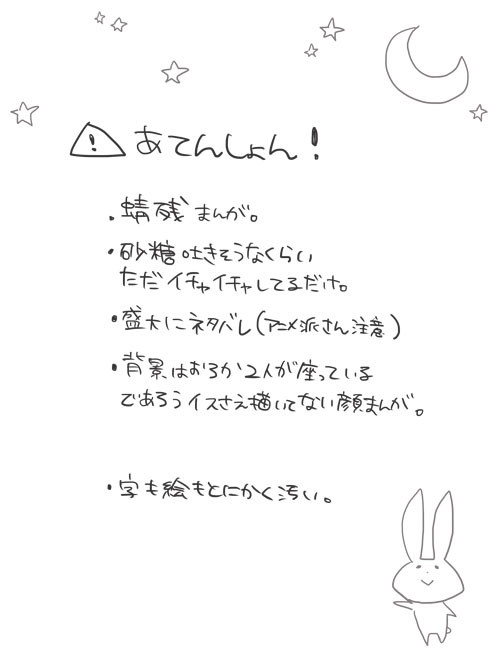 ! あてんしょん!
・蜻残まんが。
・砂糖吐きそうなくらい
ただイチャイチャしてるだけ。
・盛大にネタバレ(アニメ派さん注意)
・背景はおろか2人が座っている
であろうイスさえ描いてない顔まんが。
・字も絵もとにかく汚い。